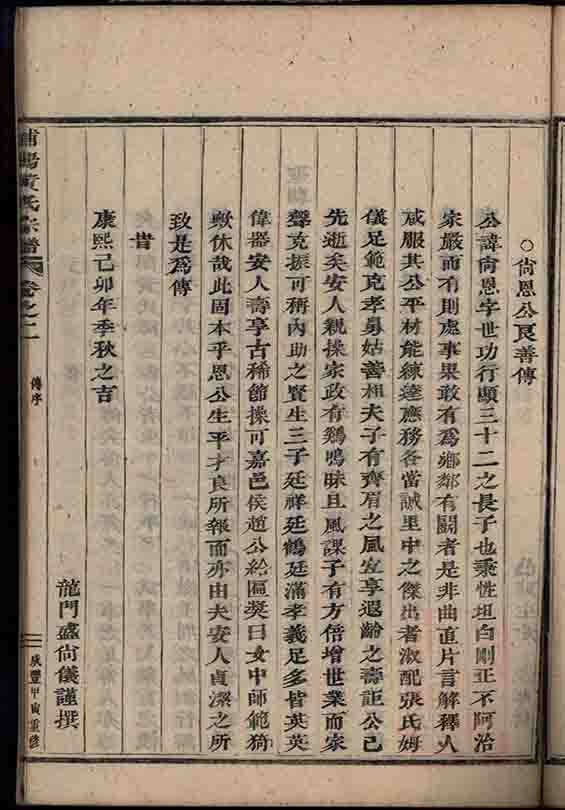 ○尙恩公良善傳
公諱尙恩字世功行顯三十二之長子也秉性坦白剛正不阿治
家嚴而有則處事果敢有爲鄉鄰有鬭者是非曲直片言解釋人
咸服其公平材能練達應務各當誠里中之傑出者淑配張氏姆
儀足範克孝舅姑善相夫子有齊眉之風宜享遐齡之壽詎公已
先逝矣安人親操家政有鷄鳴昧旦風課子有方倍增世業而家
聲克振可稱內助之賢生三子廷祥廷鶴廷滿孝義足多皆英英
偉器安人壽享古稀節操可嘉邑侯趙公給匾奬曰女中師範猗
歟休哉此固本乎恩公生平才良所報而亦由夫安人貞潔之所
致是爲傳
旹
康熙己卯年季秋之吉
龍門盛尙儀謹撰
浦陽黃氏宗譜 卷之二 傳序 咸豐甲寅重修